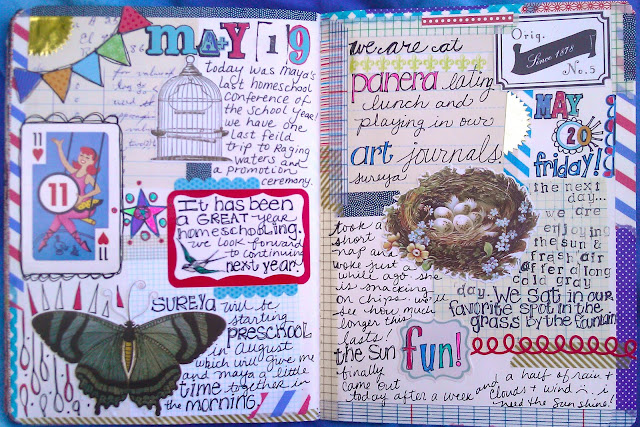 MAY 19
today was maya's
last homeschool
conference of
the school year!
we have one
last feild
trip to Raging
waters and
a promotion
ceremony.
11
11
11
It has been
a GREAT year
homeschooling.
we look forward
to continuing
next year.
SUREYA will be
starting
PRESCHOOL
in August
which will give me
and maya a little
time together in
the morning.
we are at
panera eating
lunch and
playing in our
art journals.
sureya
took a
short
nap and
woke just a
while ago she
is snacking
on chips. we'll
see how much
longer this
lasts!
the sun
finally
came out
today after a week and
a half of rain +
clouds + wind i
need the sunshine!
Orig.
Since 1878
No. 5
MAY
20
friday!
the next
day...
we are
enjoying
the sun &
fresh air
after a long
cold gray
day. We sat in our
favorite spot in the
grass by the fountain.
fun!